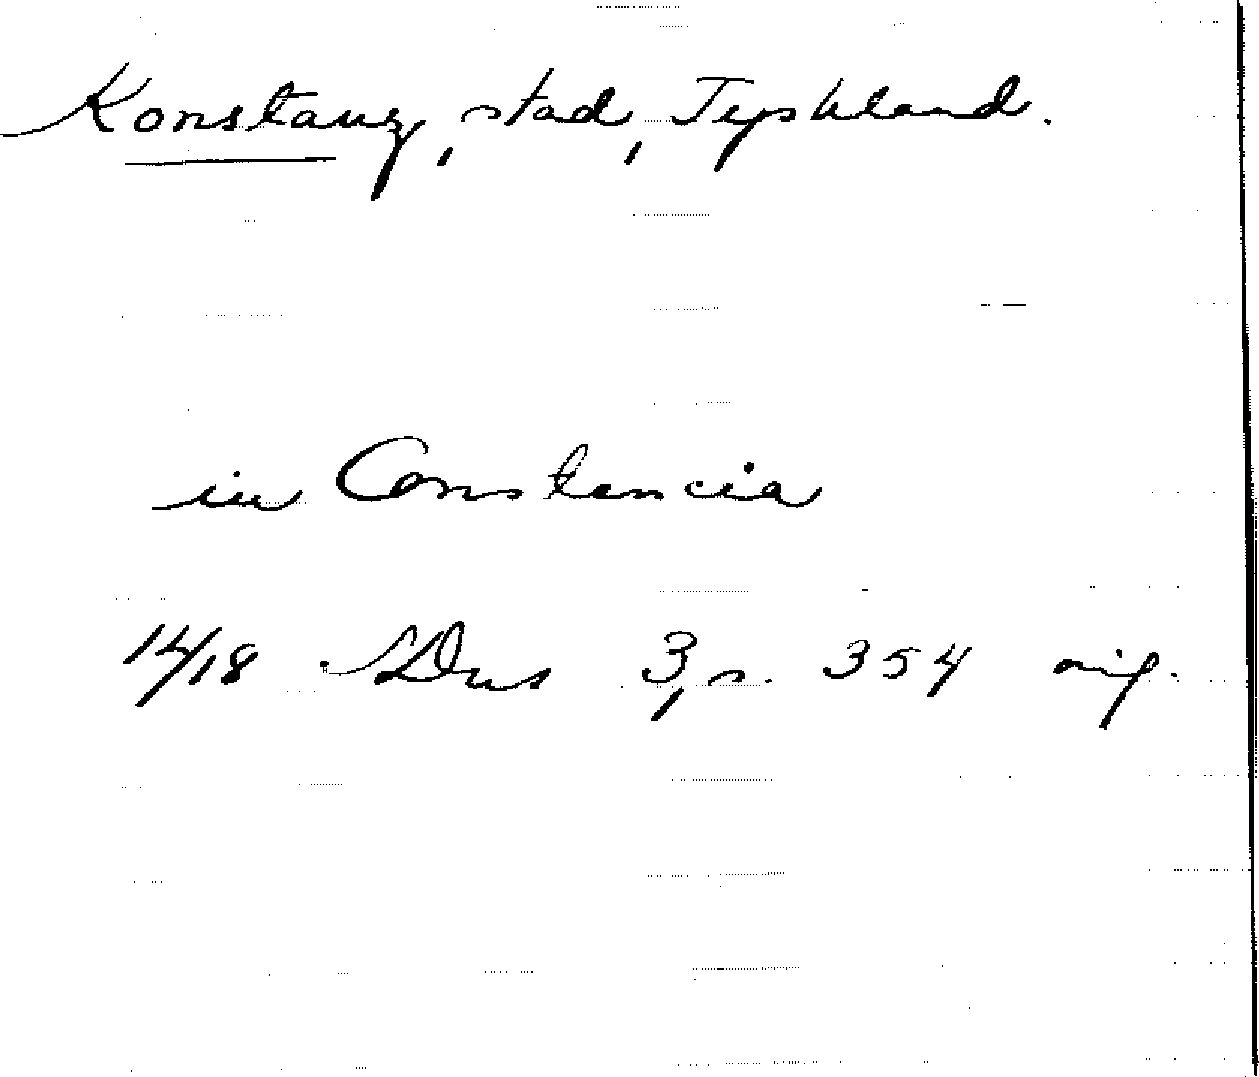 Konstanz, stad, Tyskland.
in Constancia
14/18 SDns 3, s. 354 orig.